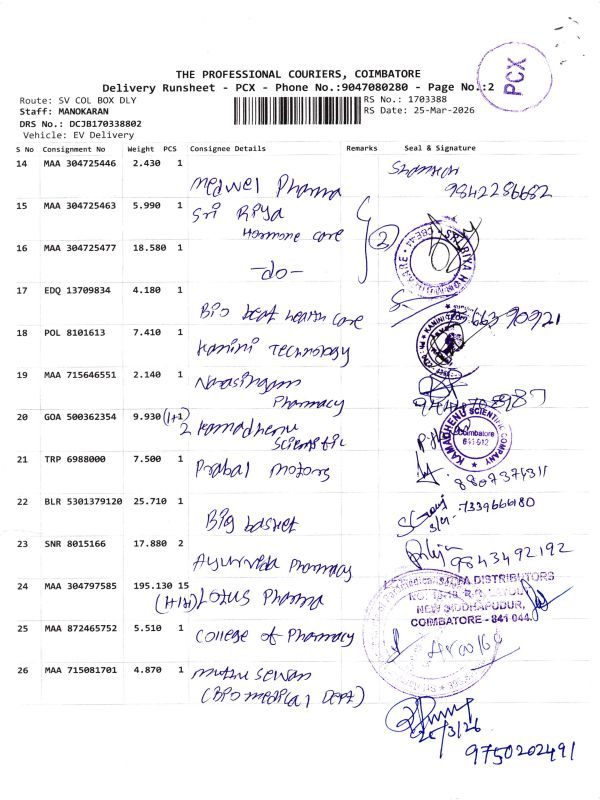 PCX
THE PROFESSIONAL COURIERS, COIMBATORE
Delivery Runsheet - PCX - Phone No.:9047080280 - Page No.:2
Route: SV COL BOX DLY
RS No.: 1703388
Staff: MANOKARAN
RS Date: 25-Mar-2026
DRS No.: DCJB170338802
Vehicle: EV Delivery
S No Consignment No Weight PCS Consignee Details Remarks Seal & Signature
14 MAA 304725446 2.430 1
Medwel Pharma
9842286682
15 MAA 304725463 5.990 1
Sri Priya
Hormone care
2
16 MAA 304725477 18.580 1
-do-
17 EDQ 13709834 4.180 1
Bio health care
18 POL 8101613 7.410 1
Kamini Technology
19 MAA 715646551 2.140 1
Narasingam
Pharmacy
20 GOA 500362354 9.930 (1+1) 2
Kamadhenu
Scientific
KAMADHENU SCIENTIFIC COMPANY
Coimbatore
641-012
21 TRP 6988000 7.500 1
Prabal motors
22 BLR 5301379120 25.710 1
Big basket
7339666180
23 SNR 8015166 17.880 2
Ayurveda Pharmacy
9843492192
24 MAA 304797585 195.130 15
(14+1) Lotus Pharma
DISTRIBUTORS
NEW SIDDHAPUDUR,
COIMBATORE - 641 044.
25 MAA 872465752 5.510 1
College of Pharmacy
26 MAA 715081701 4.870 1
muthu sewan
(BPO medical Dept)
25/3/26
9750202491